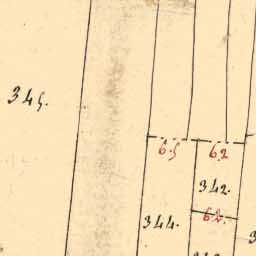 345.
6.5
6.2
342.
62.
344.